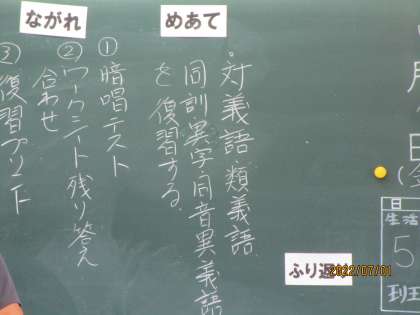 月 日
めあて
・対義語・類義語、
同訓異字・同音異義語
を復習する。
ながれ
① 暗唱テスト
② ワークシート残り答え
合わせ
③ 復習プリント
ふり返
日
生活
5
班
2022/07/01